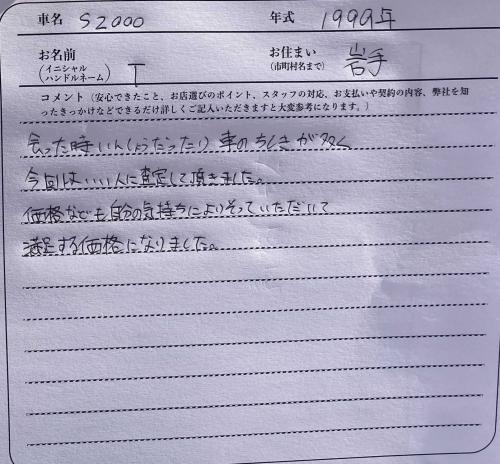 車名 S2000 年式 1999年
お名前 (イニシャル ハンドルネーム) T お住まい (市町村名まで) 岩手
コメント(安心できたこと、お店選びのポイント、スタッフの対応、お支払いや契約の内容、弊社を知
ったきっかけなどできるだけ詳しくご記入いただきますと大変参考になります。)
会った時いんしょうだったり 車のちしきが多く
今回はいい人に査定して頂きました。
価格なども自分の気持ちによりそっていただいて
満足する価格になりました。